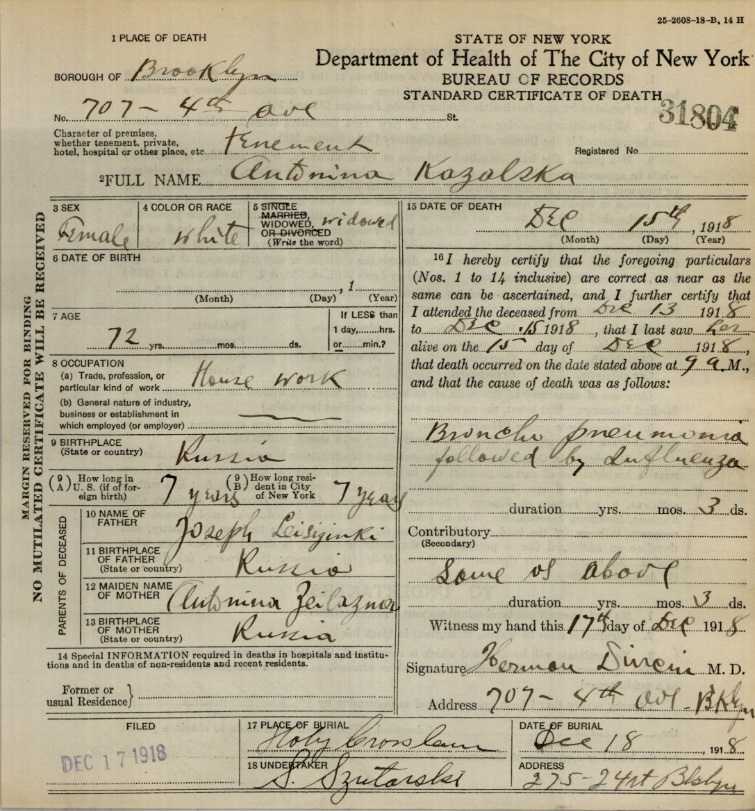 25-2608-18-B, 14 H
1 PLACE OF DEATH
STATE OF NEW YORK
Department of Health of The City of New York
BUREAU OF RECORDS
STANDARD CERTIFICATE OF DEATH
31804
BOROUGH OF Brooklyn
No. 707 - 4th ave St.
Character of premises,
whether tenement, private,
hotel, hospital or other place, etc. tenement
Registered No.
2 FULL NAME Antonina Kozalska
MARGIN RESERVED FOR BINDING
NO MUTILATED CERTIFICATE WILL BE RECEIVED
3 SEX
Female
4 COLOR OR RACE
white
5 SINGLE
MARRIED,
WIDOWED,
OR DIVORCED
(Write the word)
widowed
6 DATE OF BIRTH
, 1
(Month) (Day) (Year)
7 AGE
72 yrs. mos. ds.
If LESS than
1 day, hrs.
or min.?
8 OCCUPATION
(a) Trade, profession, or
particular kind of work House work
(b) General nature of industry,
business or establishment in
which employed (or employer)
9 BIRTHPLACE
(State or country) Russia
(9 A) How long in
U. S. (if of for-
eign birth) 7 years
(9 B) How long resi-
dent in City
of New York 7 years
PARENTS OF DECEASED
10 NAME OF
FATHER Joseph
11 BIRTHPLACE
OF FATHER
(State or country) Russia
12 MAIDEN NAME
OF MOTHER Antonina
13 BIRTHPLACE
OF MOTHER
(State or country) Russia
14 Special INFORMATION required in deaths in hospitals and institu-
tions and in deaths of non-residents and recent residents.
Former or
usual Residence}
15 DATE OF DEATH
Dec 15th, 1918
(Month) (Day) (Year)
16 I hereby certify that the foregoing particulars
(Nos. 1 to 14 inclusive) are correct as near as the
same can be ascertained, and I further certify that
I attended the deceased from Dec 13 1918
to Dec 15 1918, that I last saw her
alive on the 15 day of Dec 1918,
that death occurred on the date stated above at 9 a M.,
and that the cause of death was as follows:
Broncho pneumonia
followed by Influenza
duration yrs. mos. 3 ds.
Contributory
(Secondary)
Same as above
duration yrs. mos. 3 ds.
Witness my hand this 17th day of Dec 1918
Signature Herman M. D.
Address 707 - 4th ave - Bklyn
FILED
DEC 17 1918
17 PLACE OF BURIAL
Holy Cross
DATE OF BURIAL
Dec 18 1918
18 UNDERTAKER
S. Szutarski
ADDRESS
275-24st Bklyn